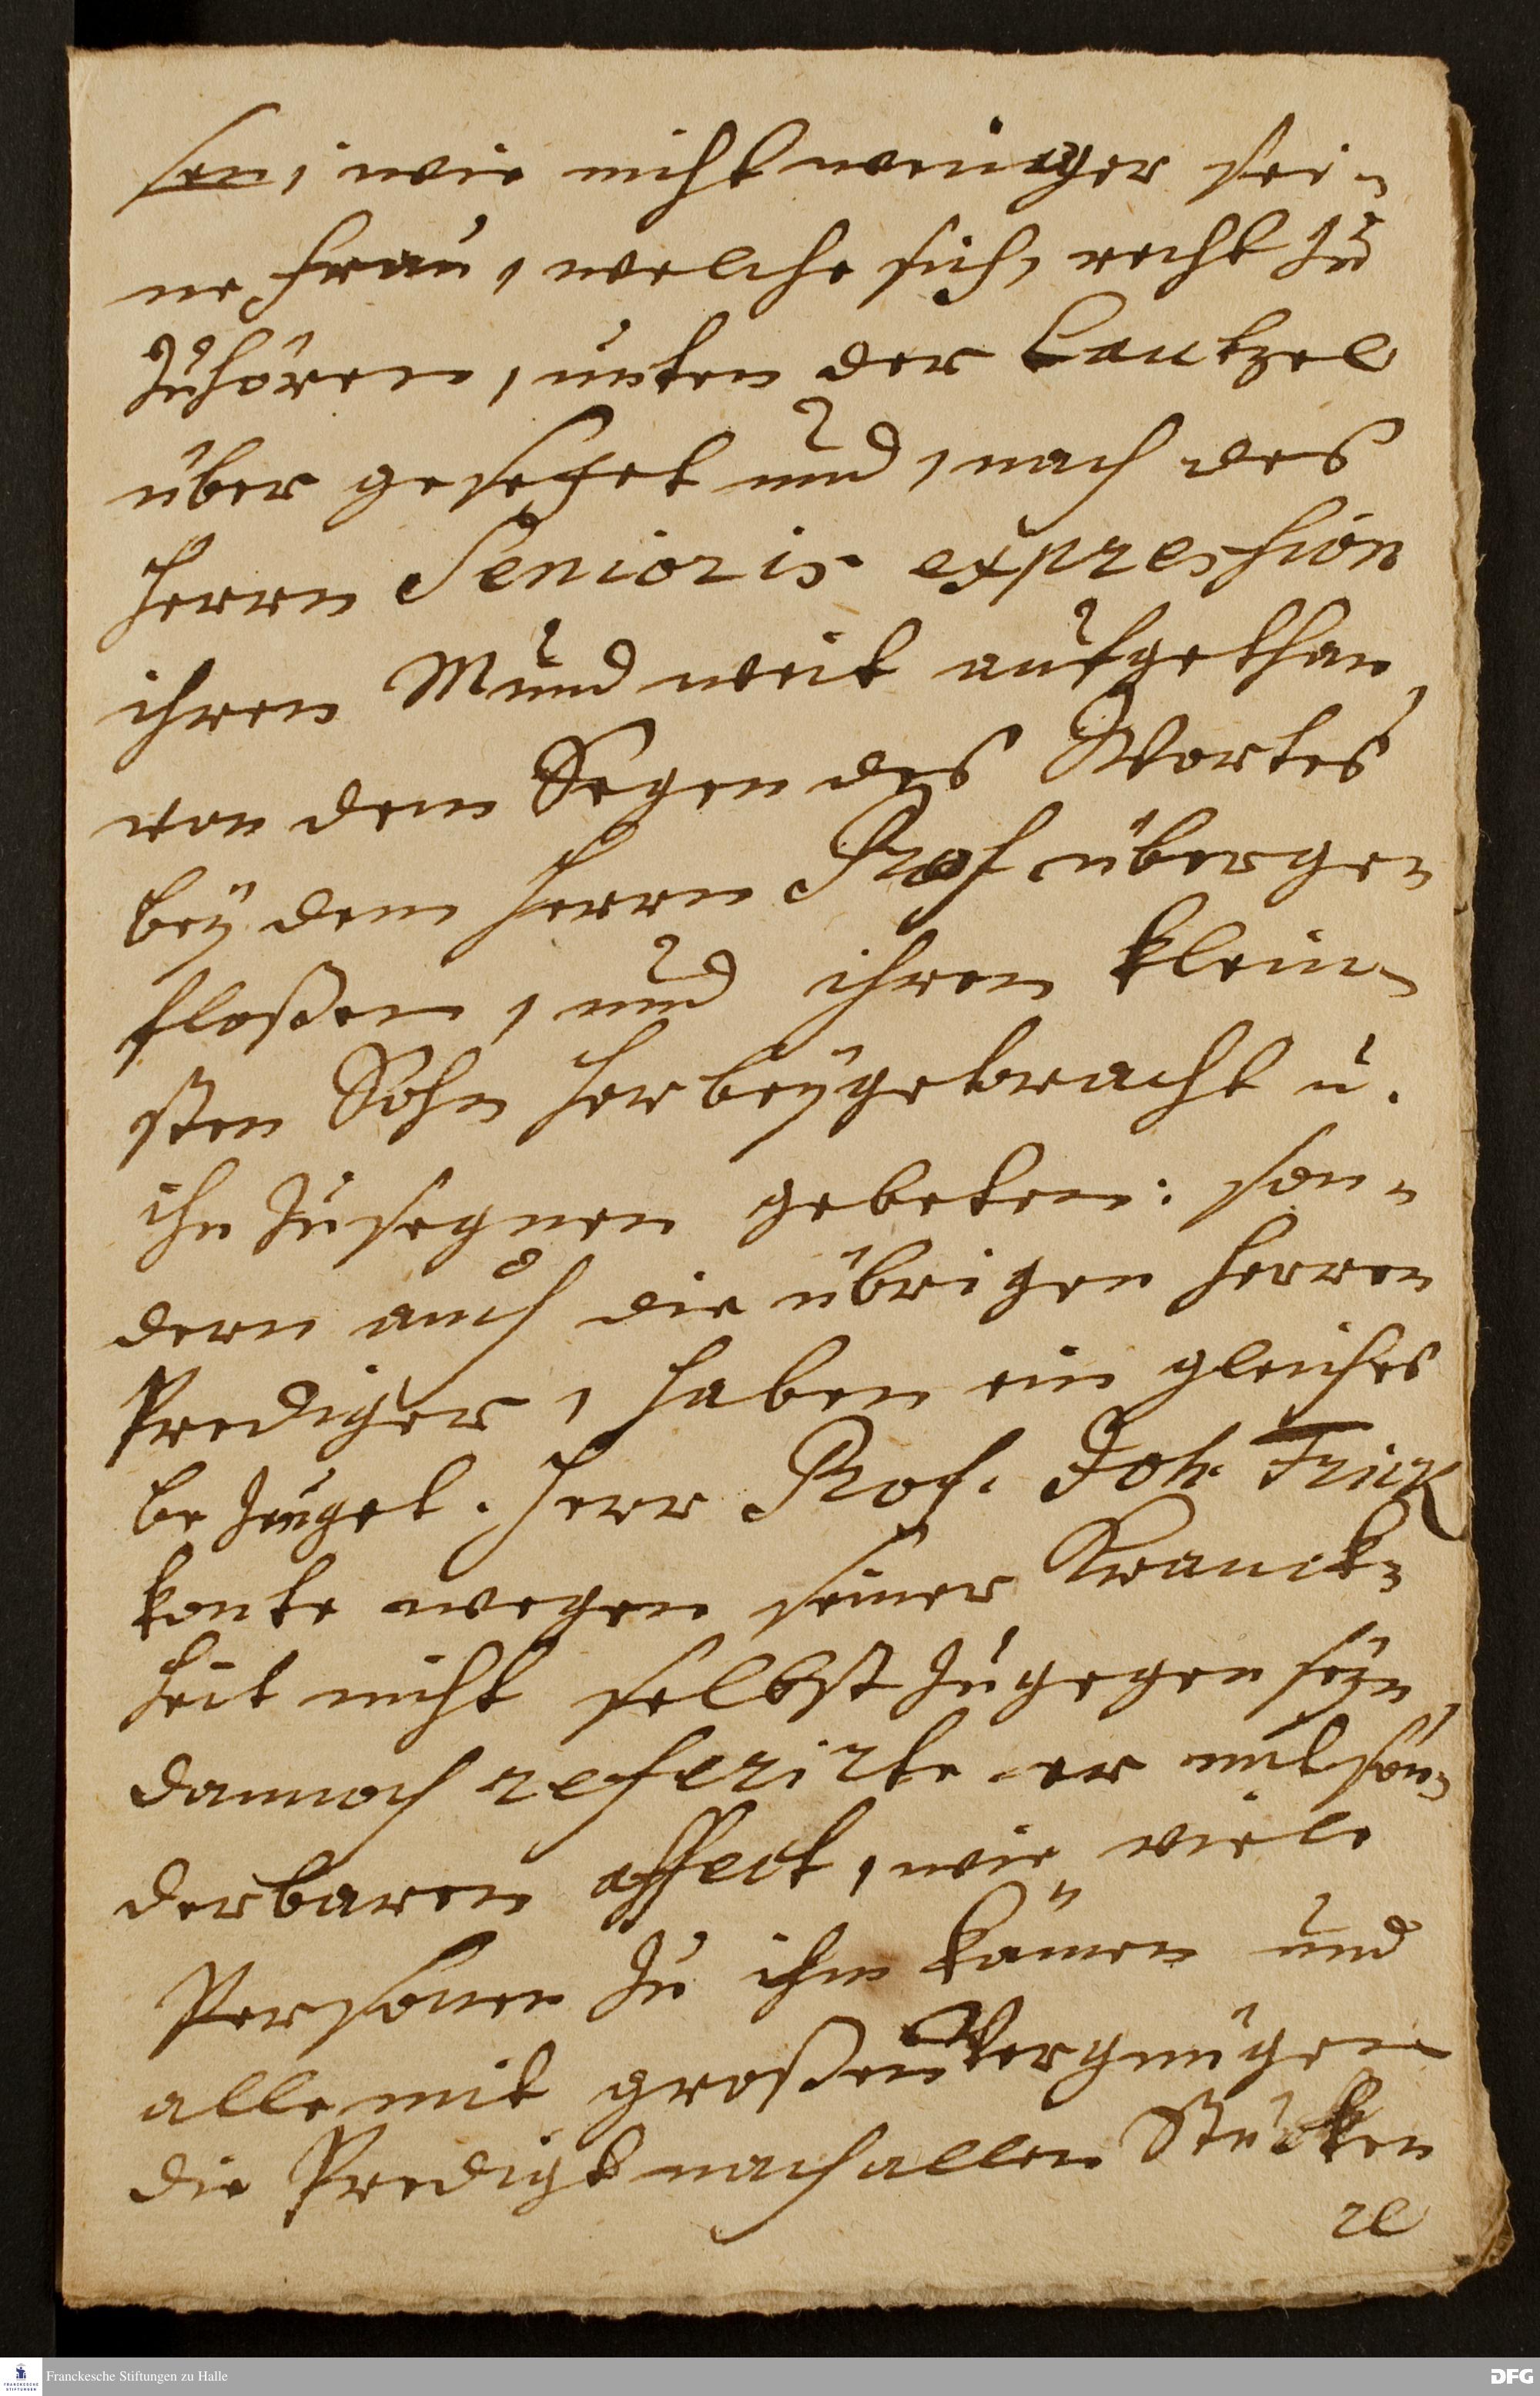 sen, wie nicht weniger sei-
ne Frau, welche sich, recht zu
zuhören, unten der Cantzel
über gesetzet und, nach des
Herrn Senioris expression
ihren Mund weit aufgethan,
von dem Segen des Wortes
bey dem Herrn Prof übergen
floßen, und ihren klein-
sten Sohn herbeygebracht u.
ihn zu segnen gebeten: son-
dern auch die übrigen Herren
Prediger, haben ein gleiches
bezeuget. Herr Prof. Joh. Frick
konte wegen seiner Kranck-
heit nicht selbst zugegen seyn,
dannoch referirte er mit son-
derbaren affect, wie viele
Personen zu ihm kämen und
alle mit großem Vergnügen
die Predigt nach allen Stücken
re
Franckesche Stiftungen zu Halle
FRANCKESCHE STIFTUNGEN
DFG